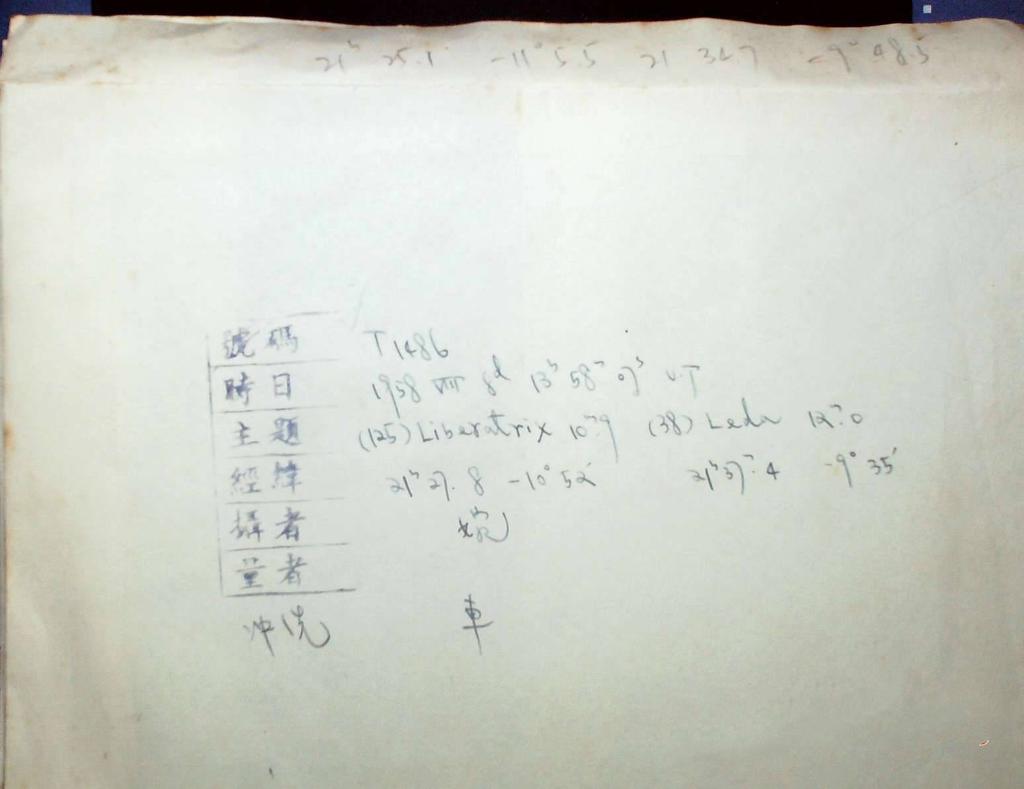 21ʰ 25.1 -11° 5.5 21 34.7 -9° 48.5
號碼 T1486
時日 1958 VIII 8ᵈ 13ʰ 58ᵐ 07ˢ U.T
主題 (125) Liberatrix 10ᵐ.9 (38) Leda 12ᵐ.0
經緯 21ʰ 27.8 -10° 52′ 21ʰ 37ᵐ.4 -9° 35′
攝者
量者
冲洗 車